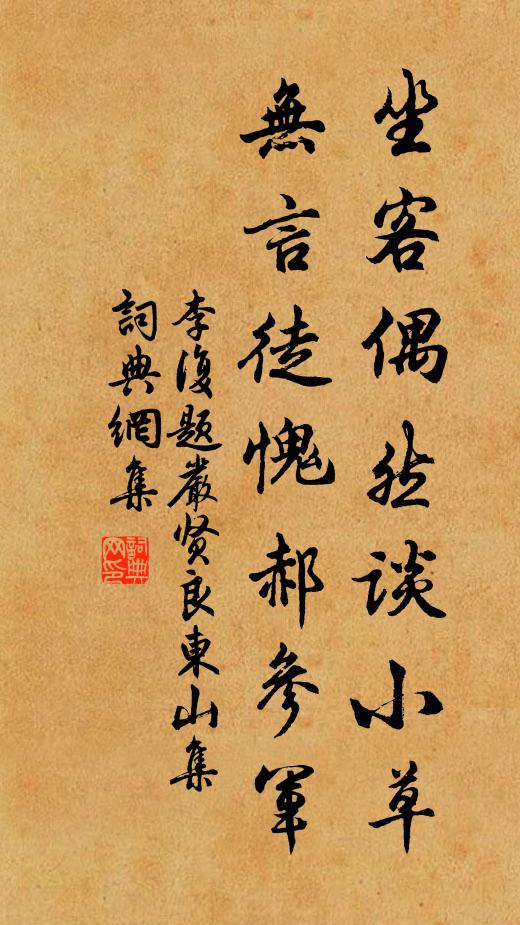 坐客偶然談小草
無言徒愧郝參軍
李復題嚴贤良東山集
詞典網集
詞典網印